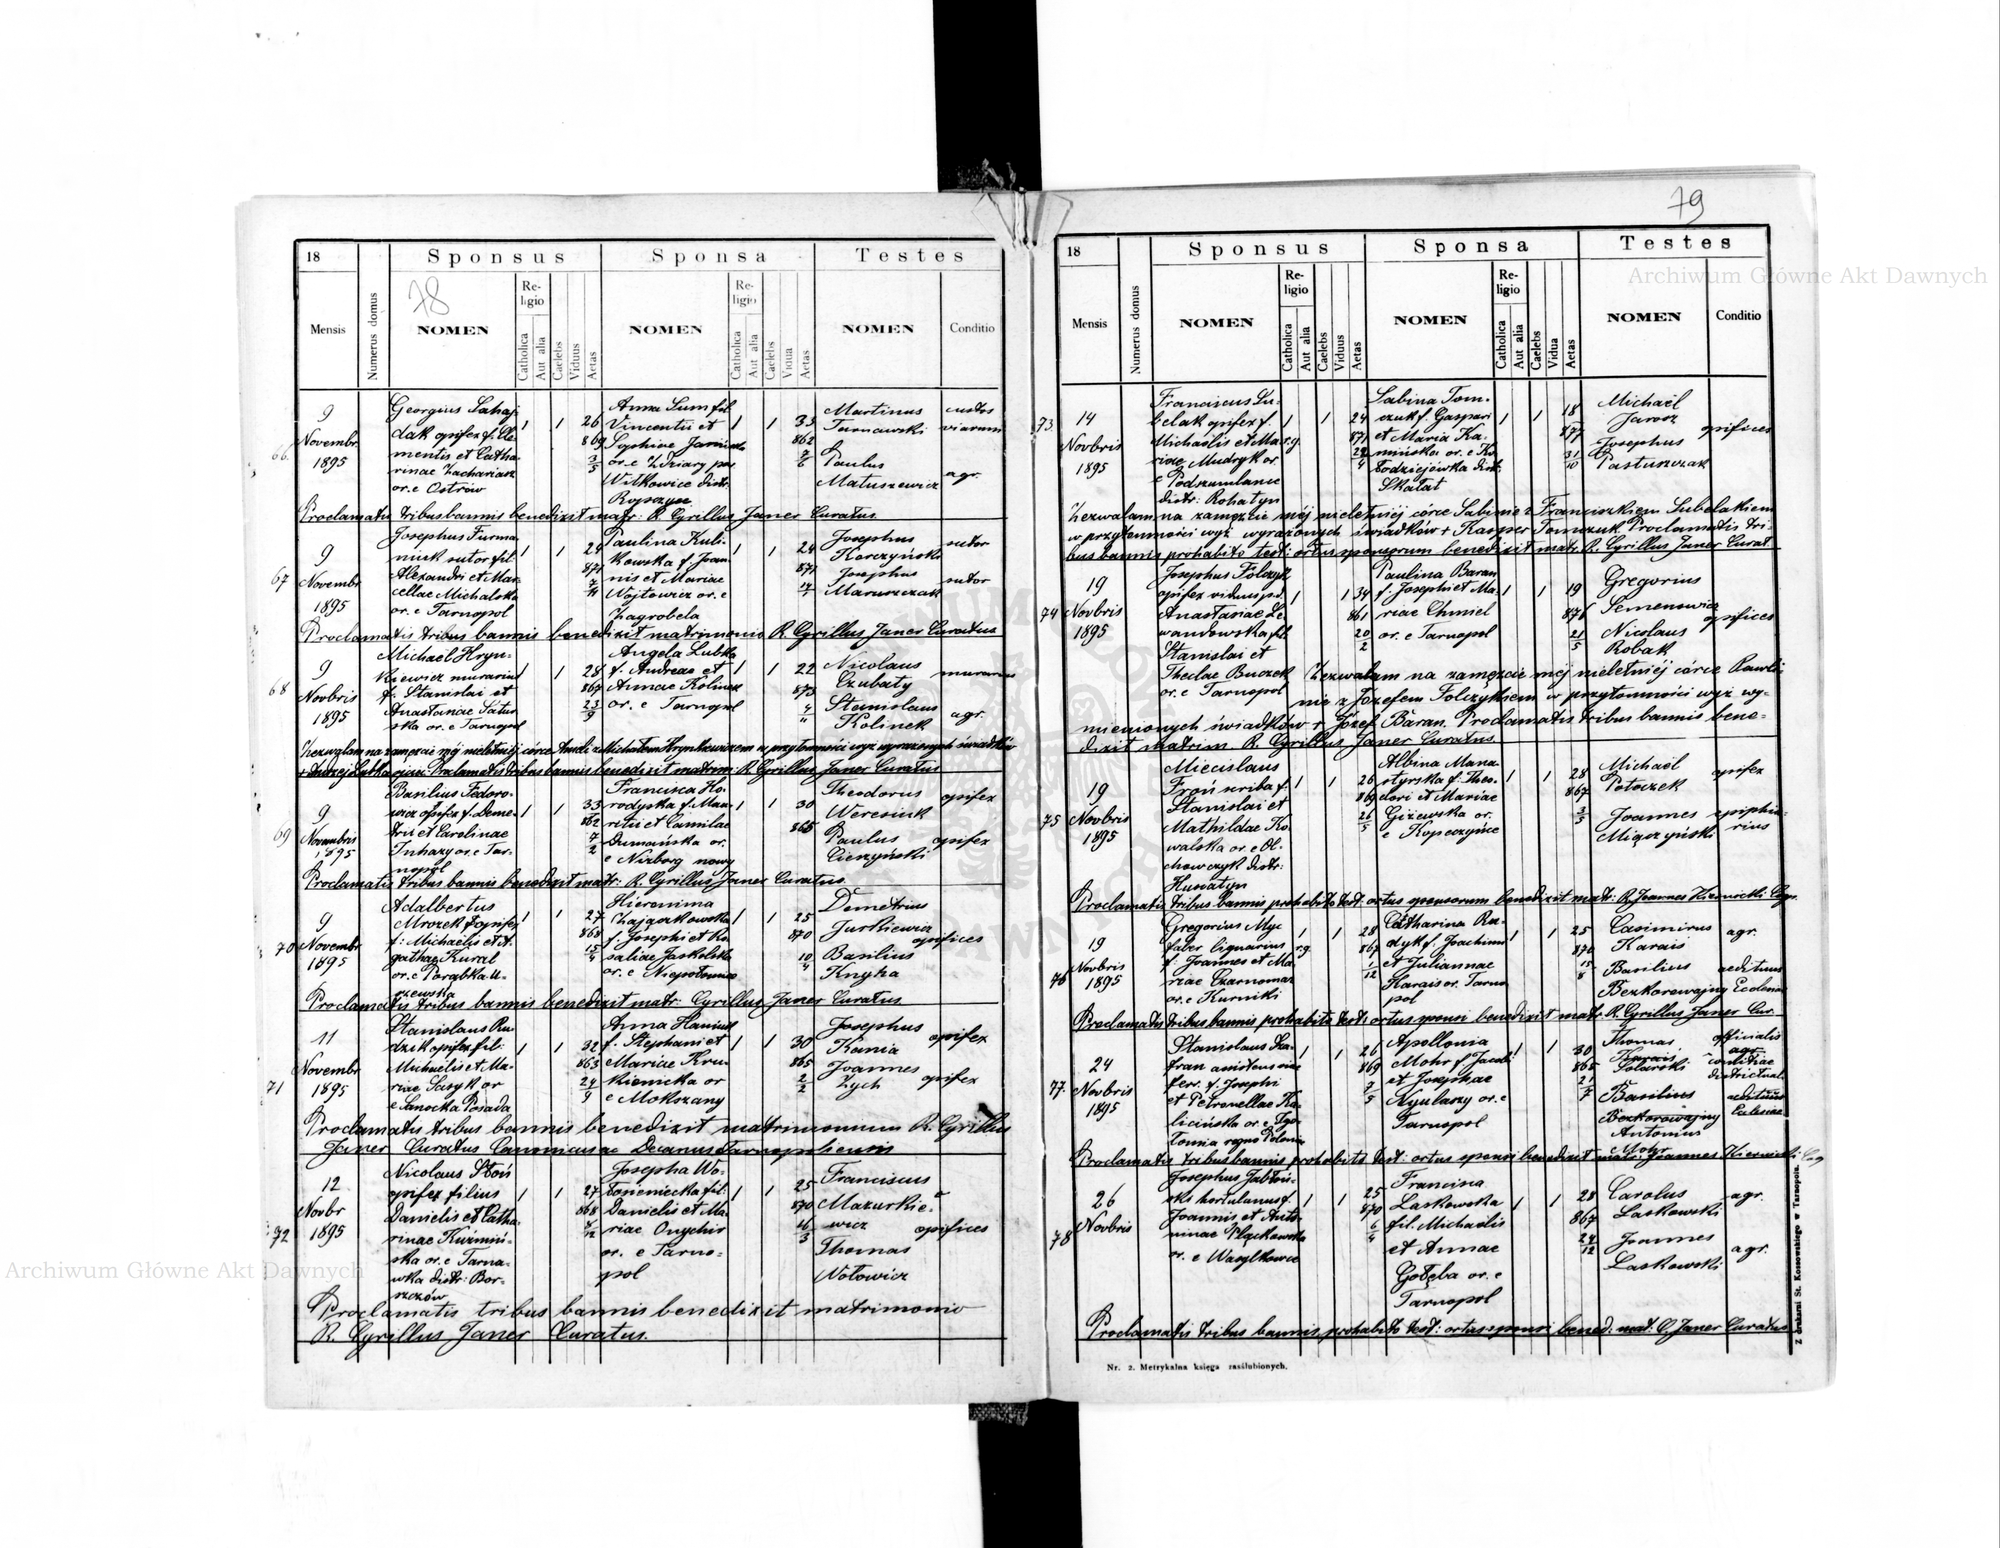 79
Archiwum Główne Akt Dawnych
18
Sponsus
Sponsa
Testes
78
Mensis
Numerus domus
NOMEN
Religio
Catholica
Aut alia
Caelebs
Viduus
Aetas
NOMEN
Religio
Catholica
Aut alia
Caelebs
Vidua
Aetas
NOMEN
Conditio
66
9
Novembr
1895
Georgius Sahaj-
dak opifex f. Cle-
mentis et Catha-
rinae Zachariasz
or. e Ostrów
1 1 26
869
3/5
Anna Sum fil.
Vincentii et
Sophiae
or. e Zdziary par.
Witkowice distr.
Ropczyce
1 1 33
862
7/6
Martinus
Tarnawski
Paulus
Matuszewicz
custos
viarum
agr.
Proclamatis tribus bannis benedixit matr: R. Cyrillus Janer Curatus.
67
9
Novembr
1895
Josephus Furma-
niuk sutor fil.
Alexandri et Mar-
cellae Michalska
or. e Tarnopol
1 1 24
871
7/11
Paulina Kuli-
kowska f. Joan-
nis et Mariae
Wojtowicz or. e
Zagrobela
1 1 24
871
Josephus
Korczyński
Josephus
Maruszczak
sutor
sutor
Proclamatis tribus bannis benedixit matrimonio R. Cyrillus Janer Curatus
68
9
Novbris
1895
Michaël Hryn-
kiewicz murarius
f. Stanislai et
Anastasiae Satur-
ska or. e Tarnopol
1 1 28
867
23/9
Angela Lubka
f. Andreae et
Annae Kolinek
or. e Tarnopol
1 1 22
873
Nicolaus
Czubaty
Stanislaus
Kolinek
murarius
agr.
Zezwalam na zamęzcie mej nieletniej córce Anieli z Michałem Hrynkiewiczem w przytomności wyż wyrażonych świadków
+ Andrzej Lubka ojciec Proclamatis tribus bannis benedixit matrim: R. Cyrillus Janer Curatus
69
9
Novembris
1895
Basilius Fedoro-
wicz opifex f. Deme-
trii et Carolinae
Tuhazy or. e Tar-
nopol
1 1 33
862
7/2
Francisca Ho-
rodyska f. Mau-
ritii et Camilae
Dumańska or.
e Nizborg nowy
1 1 30
865
Theodorus
Weresiuk
Paulus
Cieszyński
opifex
opifex
Proclamatis tribus bannis benedixit matr: R. Cyrillus Janer Curatus.
70
9
Novembr
1895
Adalbertus
Mroczek opifex
f. Michaelis et A-
gathae Kural
or. e Porąbka u-
szewska
1 1 27
868
15/4
Hieronima
Zajączkowska
f. Josephi et Ro-
saliae Jaskolska
or. e Niepołomice
1 1 25
870
10/4
Demetrius
Jurkiewicz
Basilius
Knyha
opifices
Proclamatis tribus bannis benedixit matr: Cyrillus Janer Curatus
71
11
Novembr
1895
Stanislaus Ru-
dzik opifex fil:
Michaelis et Ma-
riae Sasyk or
e Sanocka Posada
1 1 32
863
24/9
Anna Haniuk
f. Stephani et
Mariae Kru-
kienicka or
e Mokszany
1 1 30
865
2/2
Josephus
Kania
Joannes
Zych
opifex
opifex
Proclamatis tribus bannis benedixit matrimonium R. Cyrillus
Janer Curatus Canonicus ac Decanus Tarnopoliensis
72
12
Novbr
1895
Nicolaus Słoń
opifex filius
Danielis et Catha-
rinae Kuźmiń-
ska or. e Tarna-
wka distr: Bor-
szczów
1 1 27
868
Josepha Wo-
łoniecka fil:
Danielis et Ma-
riae Onychir
or. e Tarno-
pol
1 1 25
870
16/3
Franciscus
Mazurkie-
wicz
Thomas
Wołowicz
opifices
Proclamatis tribus bannis benedixit matrimonio
R. Cyrillus Janer Curatus.
18
Sponsus
Sponsa
Testes
Mensis
Numerus domus
NOMEN
Religio
Catholica
Aut alia
Caelebs
Viduus
Aetas
NOMEN
Religio
Catholica
Aut alia
Caelebs
Vidua
Aetas
NOMEN
Conditio
73
14
Novbris
1895
Franciscus Lu-
belak opifex f.
Michaëlis et Ma-
riae Mudryk or.
e Podszumlance
distr: Rohatyn
1 r.g. 1 24
871
22/4
Sabina Tom-
czuk f. Gaspari
et Maria Ka-
mińska or. e Ko-
łodziejówka distr.
Skałat
1 1 18
877
31/10
Michaël
Jarosz
Josephus
Pastuszczak
opifices
Zezwalam na zamęzcie mej nieletniej córce Sabinie z Franciszkiem Lubelakiem
w przytomności wyż wyrażonych świadków + Kasper Tomczuk Proclamatis tri-
bus bannis prohabito test: ortus sponsorum benedixit matr. R. Cyrillus Janer Curat.
74
19
Novbris
1895
Josephus Folczyk
opifex viduus p.d.
Anastasiae Le-
wandowska fil.
Stanislai et
Theclae Buczek
or. e Tarnopol
1 1 34
861
20/2
Paulina Baran
f. Josephi et Ma-
riae Chmiel
or. e Tarnopol
1 1 19
876
21/5
Gregorius
Semenowicz
Nicolaus
Robak
opifices
Zezwalam na zamęzcie mej nieletniéj córce Pauli-
nie z Józefem Folczykiem w przytomności wyż wy-
mienionych świadków + Józef Baran. Proclamatis tribus bannis bene-
dixit matrim. R. Cyrillus Janer Curatus.
75
19
Novbris
1895
Miecislaus
Froń scriba f.
Stanislai et
Mathildae Ko-
walska or. e Ol-
chowczyk distr:
Husiatyn
1 1 26
869
26/5
Albina Mana-
styrska f. Theo-
dori et Mariae
Giżewska or.
e Kopeczyńce
1 1 28
867
3/5
Michaël
Potoczek
Joannes
Miączyński
opifex
Proclamatis tribus bannis prohabito test: ortus sponsorum benedixit matr: R. Joannes
76
19
Novbris
1895
Gregorius Myc
faber lignarius
f. Joannes et Ma-
riae Czarnomaz
or. e Kurniki
r.g. 1 1 28
867
Catharina Ra-
dyk f. Joachimi
et Juliannae
Karais or. Tarno-
pol
1 1 25
870
15/8
Casimirus
Karais
Basilius
Bezkorowajny
agr.
aedituus
Proclamatis tribus bannis prohabito test: ortus sponsi benedixit matr: R. Cyrillus Janer Cur.
77
24
Novbris
1895
Stanislaus
viae
ferr. f. Josephi
et Petronellae Ka-
licińska or. e
regno Polonia
1 1 26
869
7/5
Apollonia
Mohr f. Jacobi
et Josephae
Nyulaszy or. e
Tarnopol
1 1 30
865
21/7
Thomas
Karais
Basilius
Bezkorowajny
Antonius
Mohr
officialis
agr.
districtual.
aedituus
Proclamatis tribus bannis prohabito test: ortus sponsi benedixit matr: Joannes
78
26
Novbris
Josephus Jabłoń-
ski hortulanus f.
Joannis et Anto-
ninae Plackowska
or. e Wasylkowce
1 1 25
870
6/4
Francina
Laskowska
fil. Michaëlis
et Annae
Gołęba or. e
Tarnopol
1 1 28
867
24/12
Carolus
Laskowski
Joannes
Laskowski
agr.
agr.
Proclamatis tribus bannis prohabito test: ortus sponsi bened: mat. C. Janer Curatus
Nr. 2. Metrykalna księga zaślubionych.
Z drukarni St. Kossowskiego w Tarnopolu.
Archiwum Główne Akt Dawnych